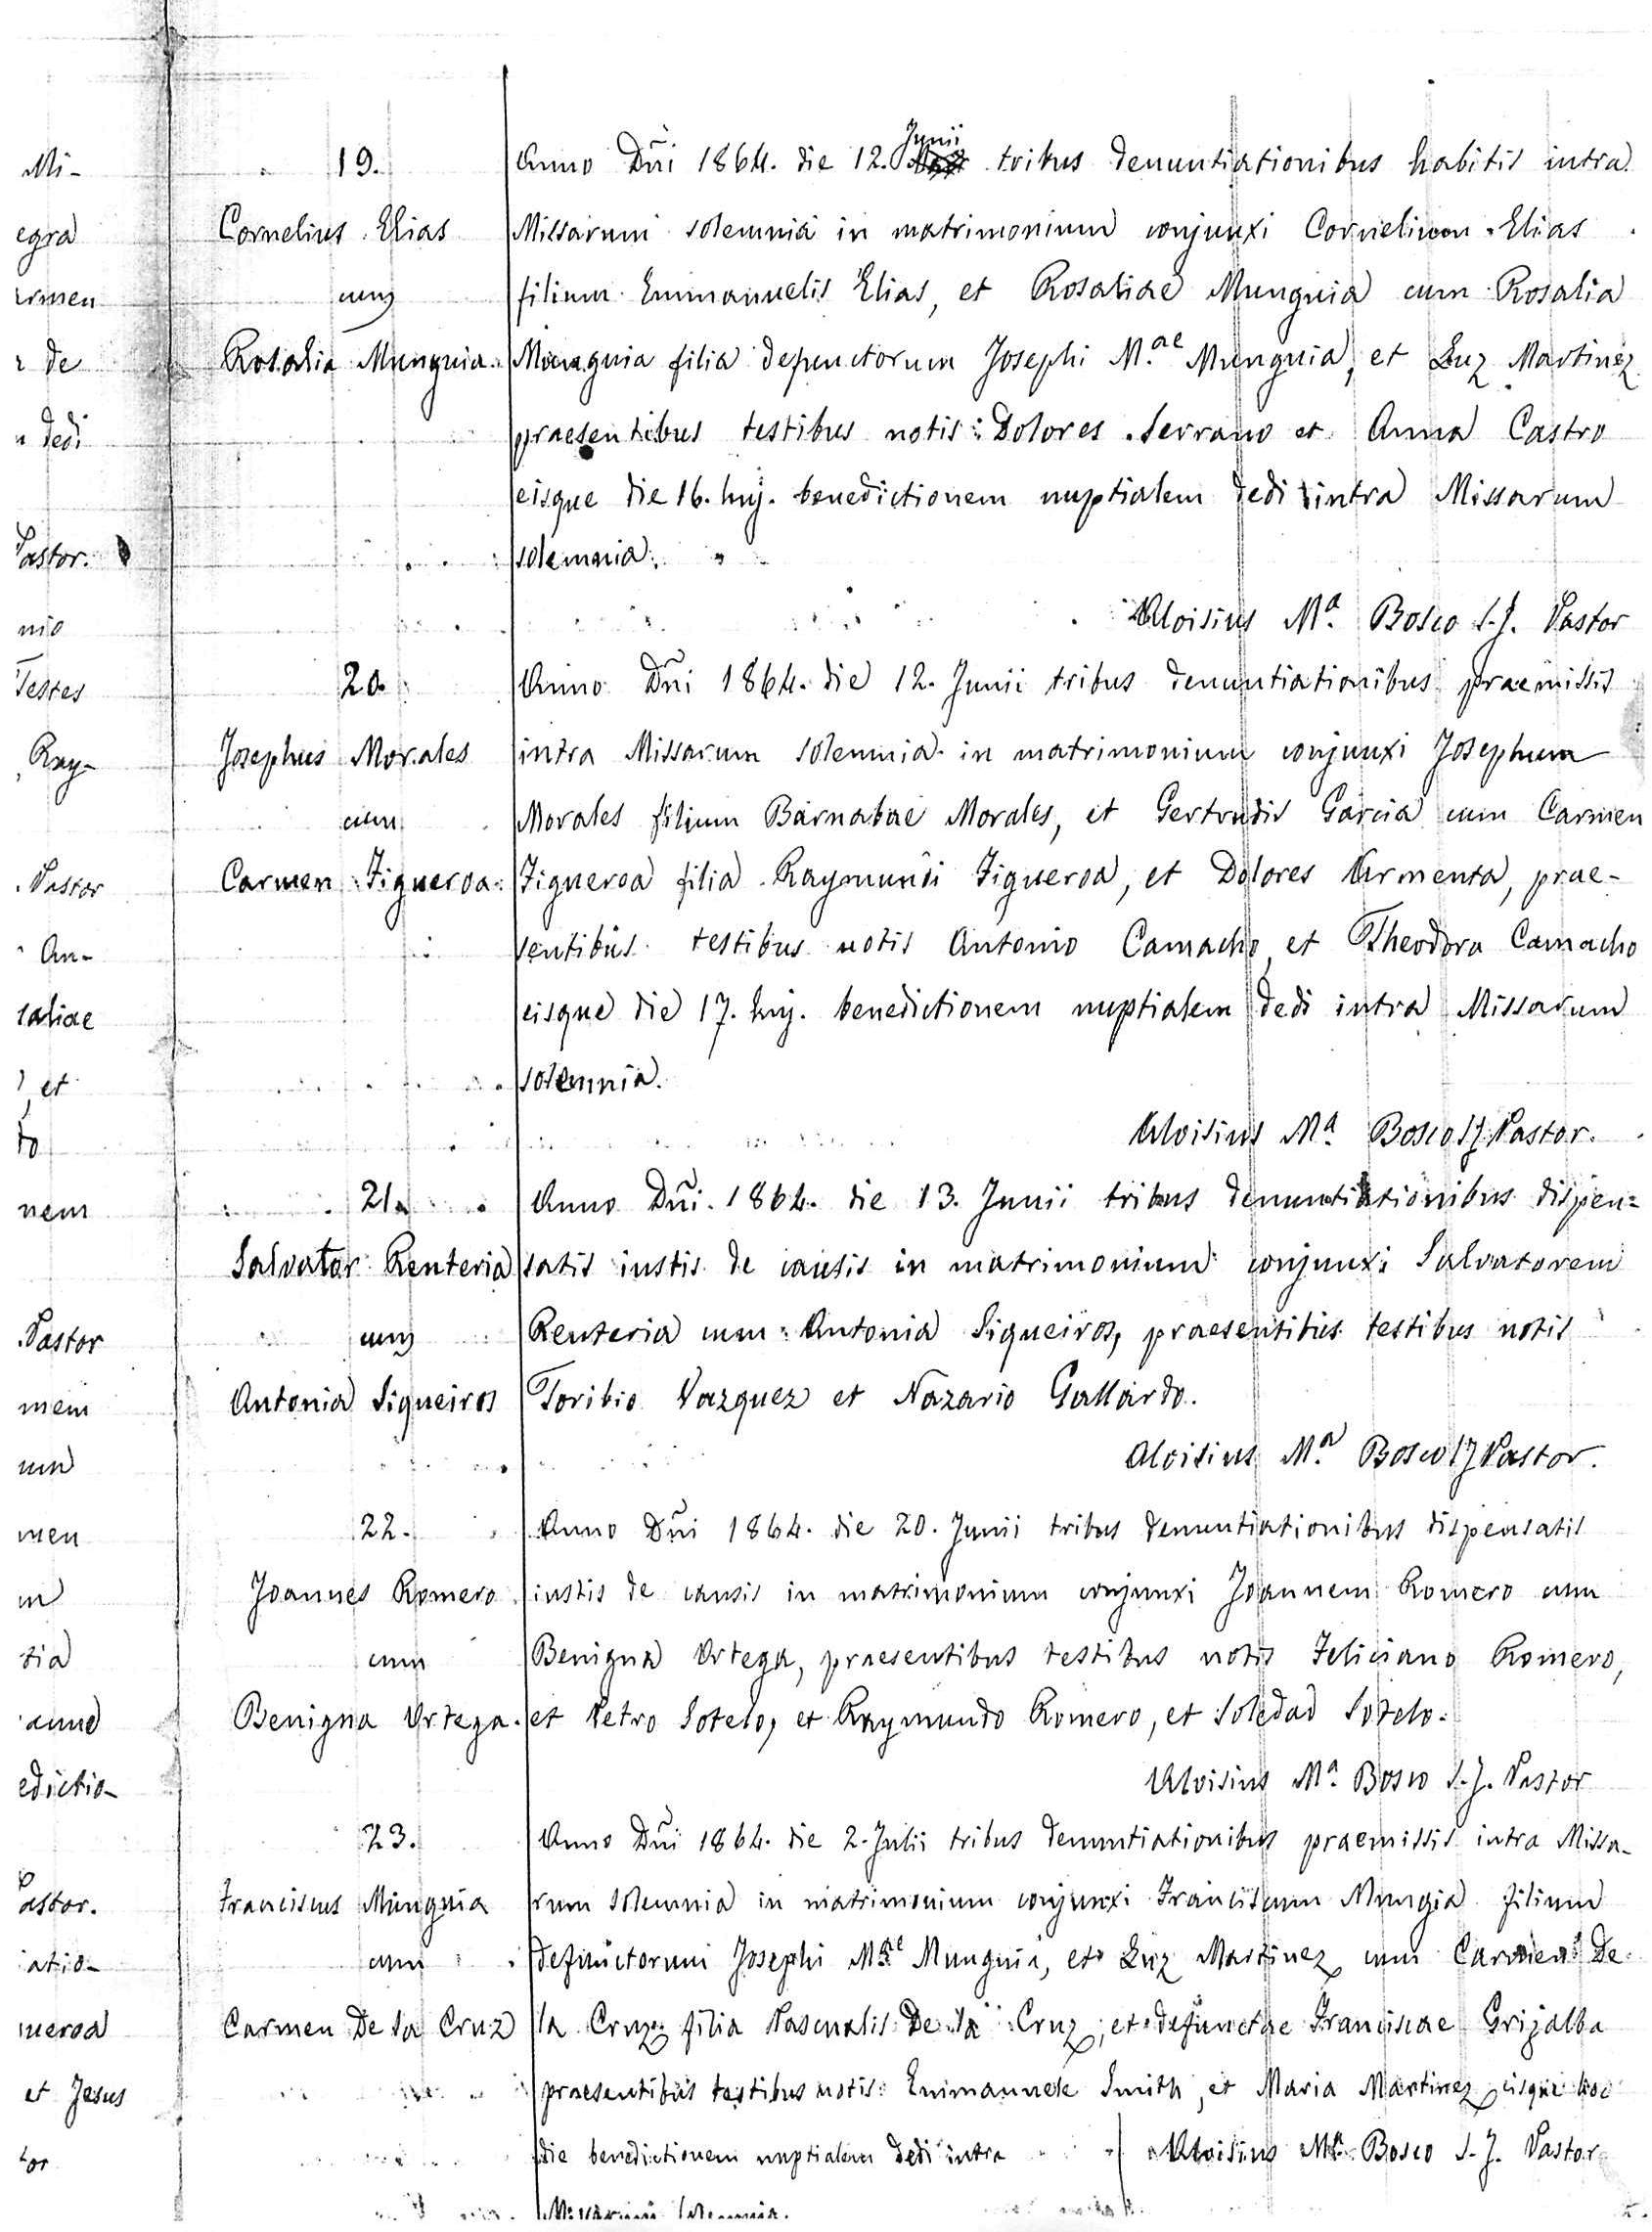 Mi-
egra
rmen
r de
n dedi
Pastor.
nio
Testes
, Ray-
. Pastor
An-
saliae
), et
to
nem
Pastor
mem
um
men
m
tia
anne
edictio-
Pastor.
iatio-
ueroa
et Jesus
tor
19.
Cornelius Elias
cum
Rosalia Munguia.
Anno Dñi 1864. die 12. Junii tribus denuntiationibus habitis intra
Missarum solemnia in matrimonium conjunxi Cornelium Elias
filium Emmanuelis Elias, et Rosaliae Munguia cum Rosalia
Munguia filia defunctorum Josephi M.ae Munguia, et Luz Martinez
praesentibus testibus notis: Dolores Serrano et Anna Castro
eisque die 16. huj. benedictionem nuptialem dedi intra Missarum
solemnia.
Aloisius Ma. Bosco S.J. Pastor
20.
Josephus Morales
cum
Carmen Figueroa.
Anno Dñi 1864. die 12. Junii tribus denuntiationibus praemissis
intra Missarum solemnia in matrimonium conjunxi Josephum
Morales filium Barnabae Morales, et Gertrudis Garcia cum Carmen
Figueroa filia Raymundi Figueroa, et Dolores Armenta, prae-
sentibus testibus notis Antonio Camacho, et Theodora Camacho
eisque die 17. huj. benedictionem nuptialem dedi intra Missarum
solemnia.
Aloisius Ma. Bosco SJ Pastor.
21.
Salvator Renteria
cum
Antonia Siqueiros
Anno Dñi. 1864. die 13. Junii tribus denuntiationibus dispen=
satis iustis de causis in matrimonium conjunxi Salvatorem
Renteria cum Antonia Siqueiros, praesentibus testibus notis
Toribio Vazquez et Nazario Gallardo.
Aloisius Ma. Bosco SJ Pastor.
22.
Joannes Romero
cum
Benigna Ortega.
Anno Dñi 1864. die 20. Junii tribus denuntiationibus dispensatis
iustis de causis in matrimonium conjunxi Joannem Romero cum
Benigna Ortega, praesentibus testibus notis Feliciano Romero,
et Petro Sotelo, et Raymundo Romero, et Soledad Sotelo.
Aloisius Ma. Bosco S.J. Pastor
23.
Franciscus Munguia
cum
Carmen De la Cruz
Anno Dñi 1864. die 2. Julii tribus denuntiationibus praemissis intra Missa-
rum solemnia in matrimonium conjunxi Franciscum Mungia filium
defunctorum Josephi Mae Munguia, et Luz Martinez cum Carmen De
la Cruz filia Pascualis De la Cruz, et defunctae Franciscae Grijalba
praesentibus testibus notis Emmanuele Smith, et Maria Martinez eisque hoc
die benedictionem nuptialem dedi intra
Missarum solemnia.
Aloisius Ma. Bosco S.J. Pastor